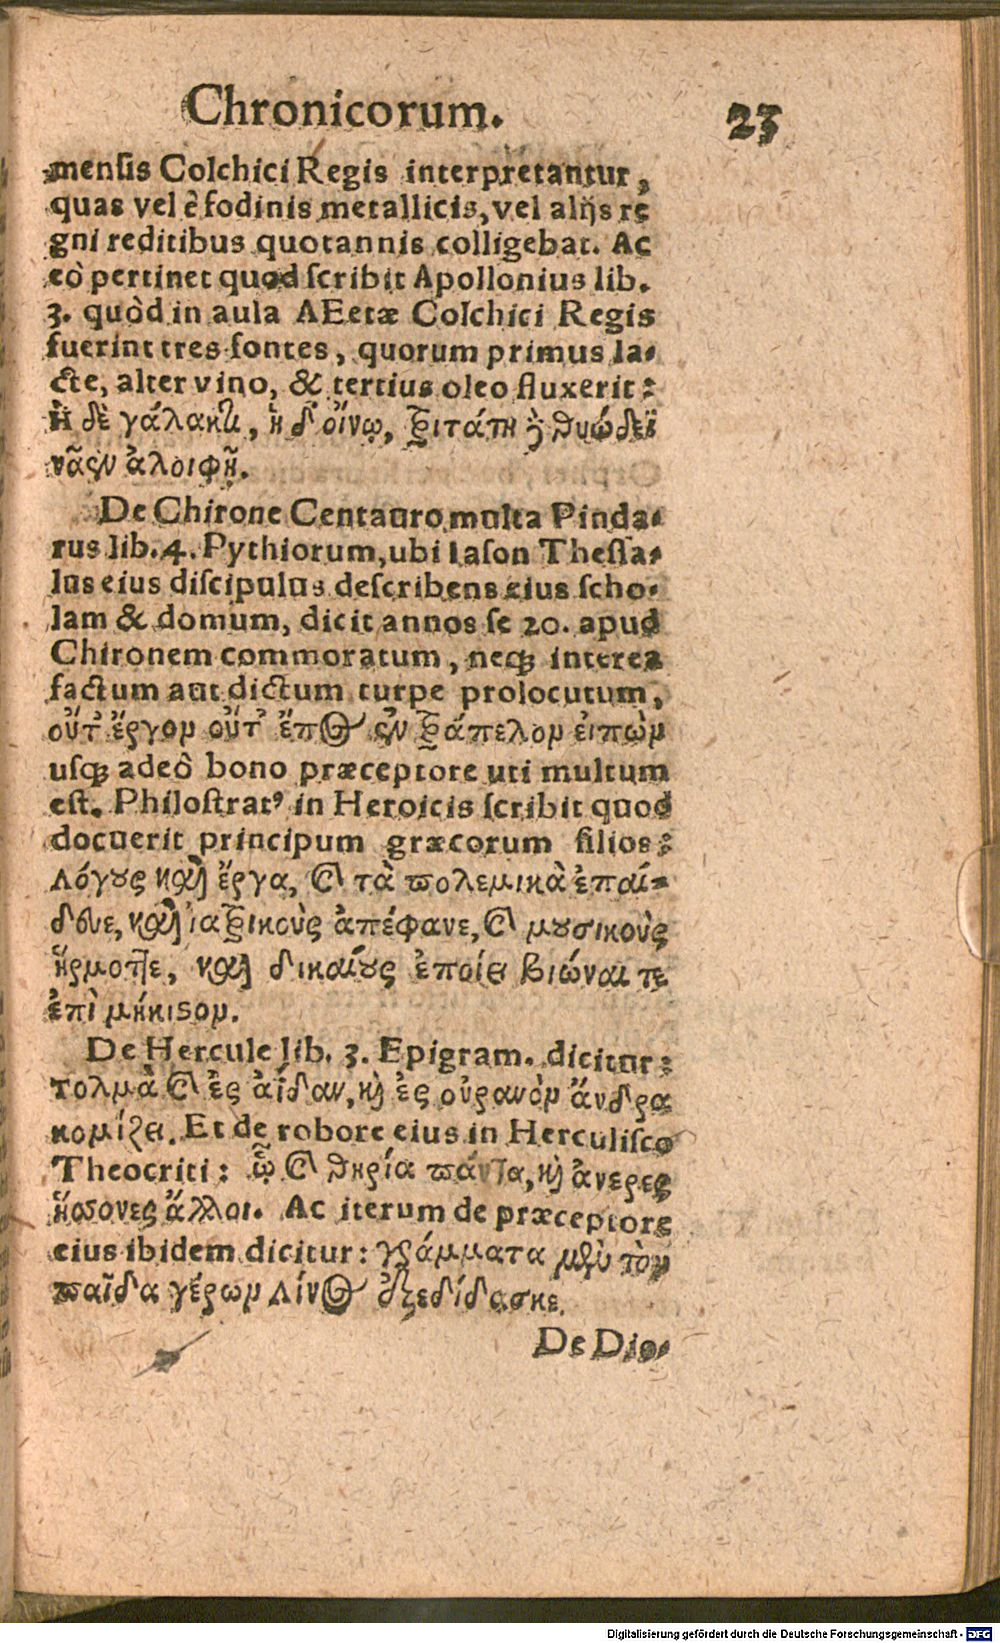 Chronicorum. 23
mensis Colchici Regis interpretantur,
quas vel è fodinis metallicis, vel alijs re
gni reditibus quotannis colligebat. Ac
eò pertinet quod scribit Apollonius lib.
3. quòd in aula AEetæ Colchici Regis
fuerint tres fontes, quorum primus la-
cte, alter vino, & tertius oleo fluxerit:
Ἡ δὲ γάλακτι, ἡ δ' οἴνῳ, τριτάτη ἢ θυώδεϊ
νᾶεν ἀλοιφῇ.
De Chirone Centauro multa Pinda-
rus lib. 4. Pythiorum, ubi Iason Thessa-
lus eius discipulus describens eius scho-
lam & domum, dicit annos se 20. apud
Chironem commoratum, neq; interea
factum aut dictum turpe prolocutum,
οὔτ' ἔργον οὔτ' ἔπος ἐντράπελον εἰπὼν
usq; adeò bono præceptore uti multum
est. Philostrat⁹ in Heroicis scribit quod
docuerit principum græcorum filios:
Λόγους καὶ ἔργα, καὶ τὰ πολεμικὰ ἐπαί-
δευε, καὶ ἰατρικοὺς ἀπέφανε, καὶ μουσικοὺς
ἥρμοττε, καὶ δικαίους ἐποίει βιώναι τε
ἐπὶ μήκιστον.
De Hercule lib. 3. Epigram. dicitur:
τολμᾶ καὶ ἐς ἀΐδαν, καὶ ἐς οὐρανὸν ἄνδρα
κομίζει. Et de robore eius in Herculisco
Theocriti: ᾧ καὶ θηρία πάντα, καὶ ἀνερες
ἥσσονες ἄλλοι. Ac iterum de præceptore
eius ibidem dicitur: γράμματα μὲν τὸν
παῖδα γέρων Λίνος ἐξεδίδασκε.
De Dio-
Digitalisierung gefördert durch die Deutsche Forschungsgemeinschaft - DFG